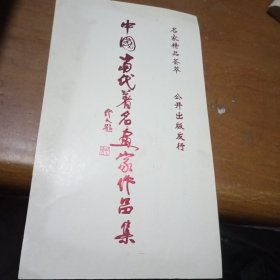 名家精品荟萃
公开出版发行
中國當代著名畫家作品集